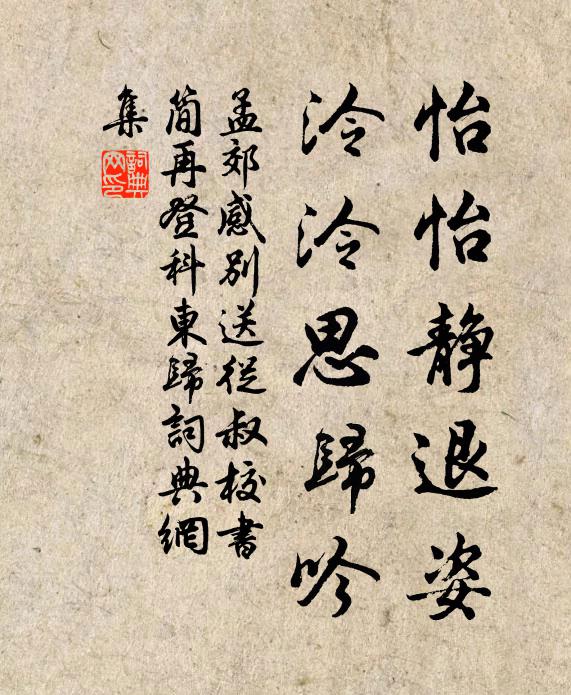 怡怡靜退姿
泠泠思歸吟
孟郊感別送從叔校書
簡再登科東歸詞典網
集
詞典网印